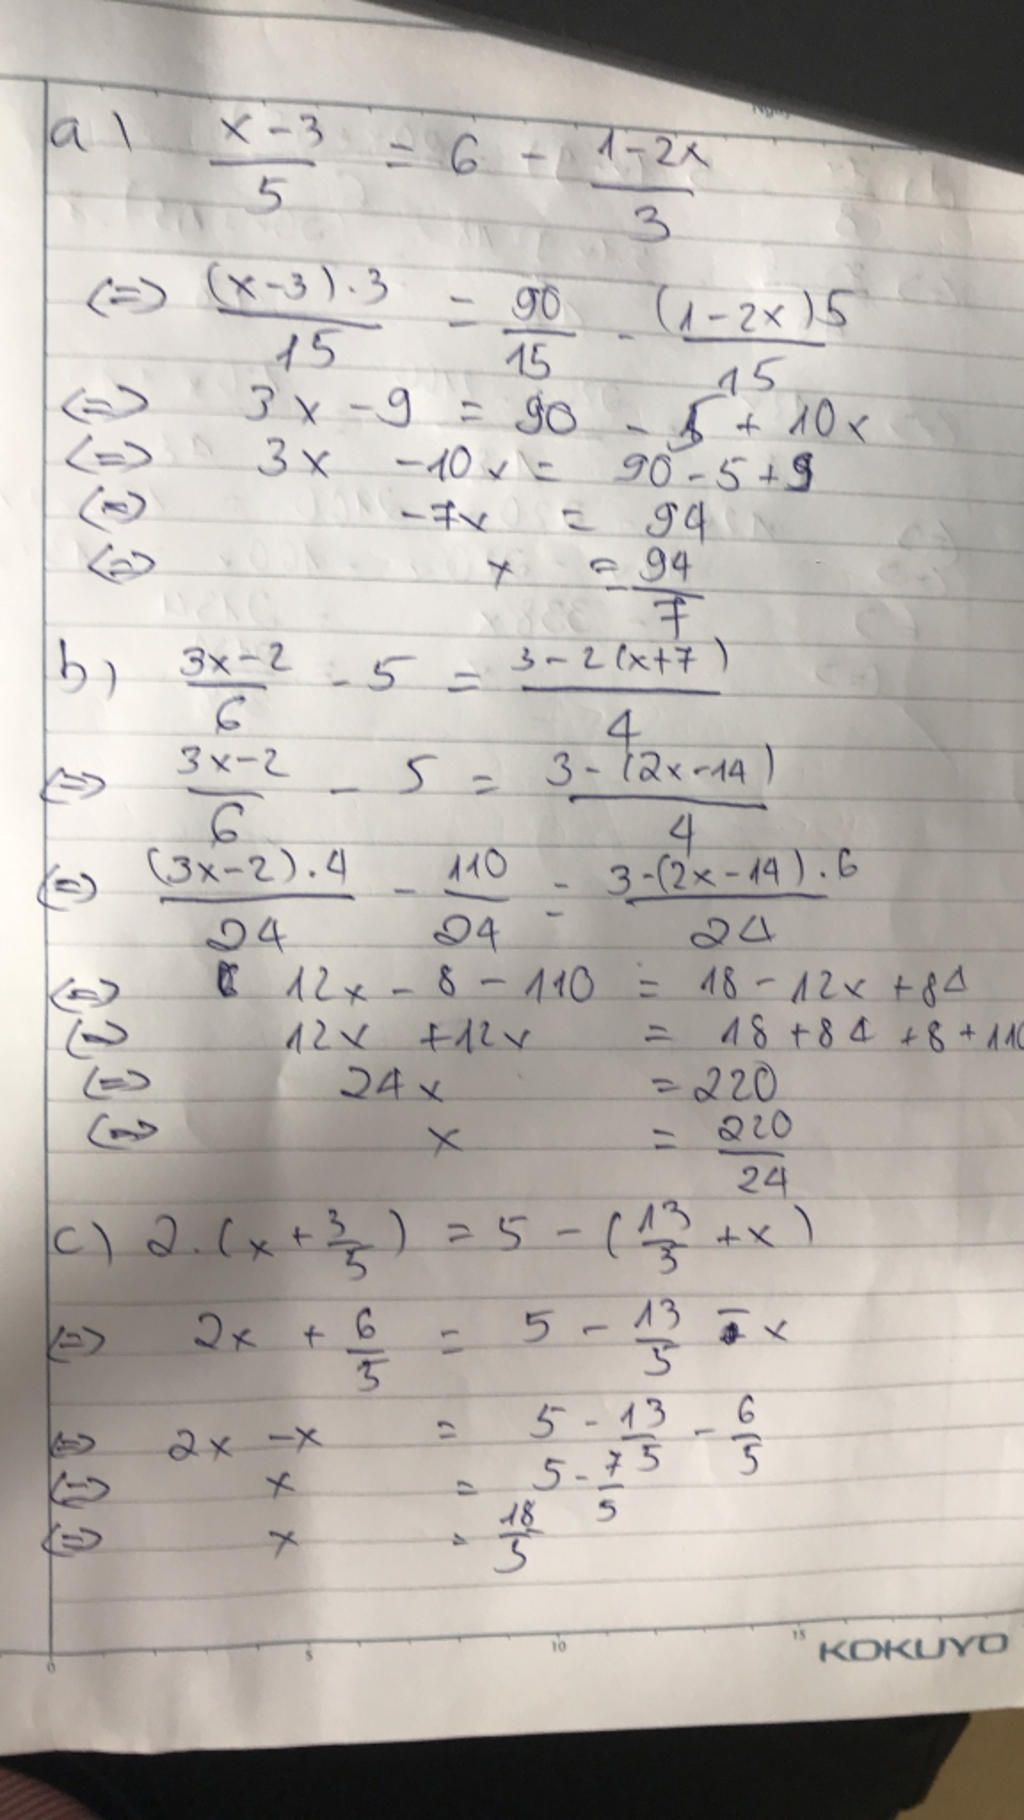 a) (x-3)/5 = 6 - (1-2x)/3
<=> ((x-3).3)/15 = 90/15 - ((1-2x)5)/15
<=> 3x - 9 = 90 - 5 + 10x
<=> 3x - 10x = 90 - 5 + 9
<=> -7x = 94
<=> x = -94/7
b) (3x-2)/6 - 5 = (3-2(x+7))/4
<=> (3x-2)/6 - 5 = (3-(2x-14))/4
<=> ((3x-2).4)/24 - 110/24 = (3-(2x-14).6)/24
<=> 12x - 8 - 110 = 18 - 12x + 84
<=> 12x + 12x = 18 + 84 + 8 + 110
<=> 24x = 220
<=> x = 220/24
c) 2.(x + 3/5) = 5 - (13/5 + x)
<=> 2x + 6/5 = 5 - 13/5 - x
<=> 2x - x = 5 - 13/5 - 6/5
<=> x = 5 - 7/5
<=> x = 18/5
0 5 10 15
KOKUYO